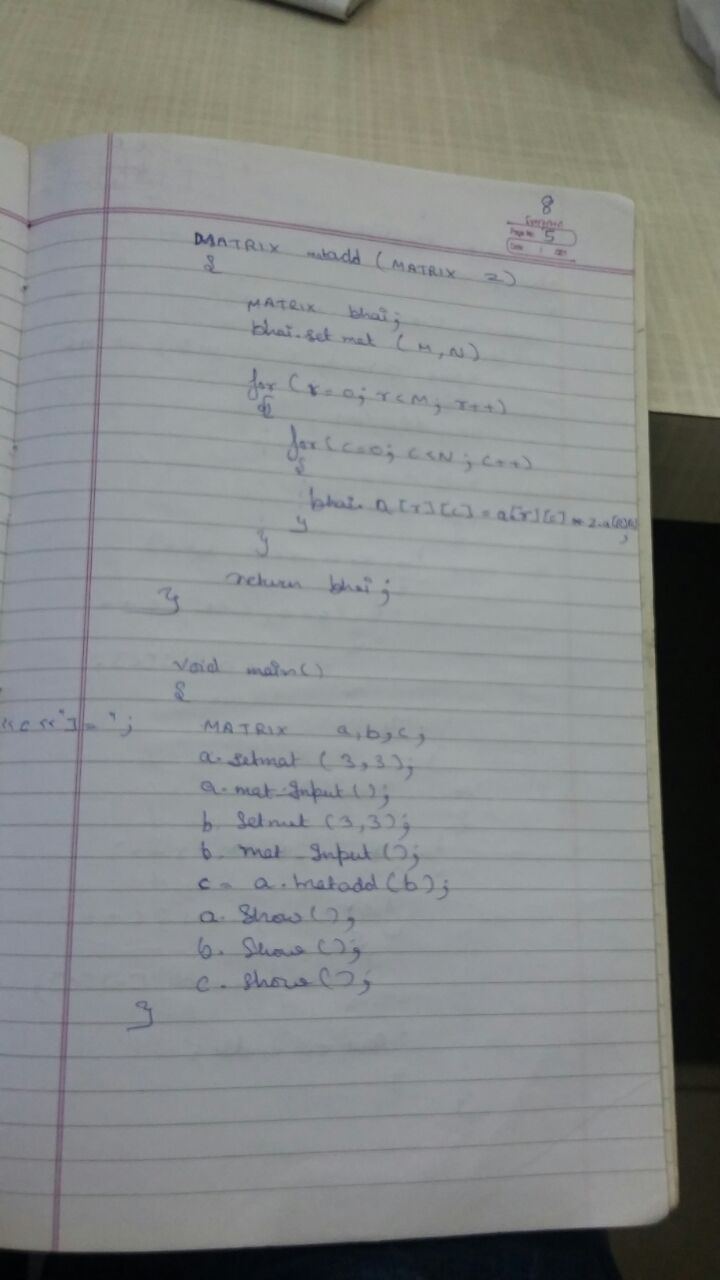 8
Page No. 5
Date
MATRIX matadd (MATRIX 2)
{
MATRIX bhai;
bhai.set mat (M,N)
for (r=0; r<M; r++)
{
for(c=0; c<N; c++)
{
bhai. a[r][c] = a[r][c]
}
}
return bhai;
}
void main()
{
<<c<<"]=";
MATRIX a,b,c;
a.setmat (3,3);
a.mat-Input();
b Setmat (3,3);
b. mat-Input();
c = a.matadd(b);
a. Show();
b. Show();
c. Show();
}